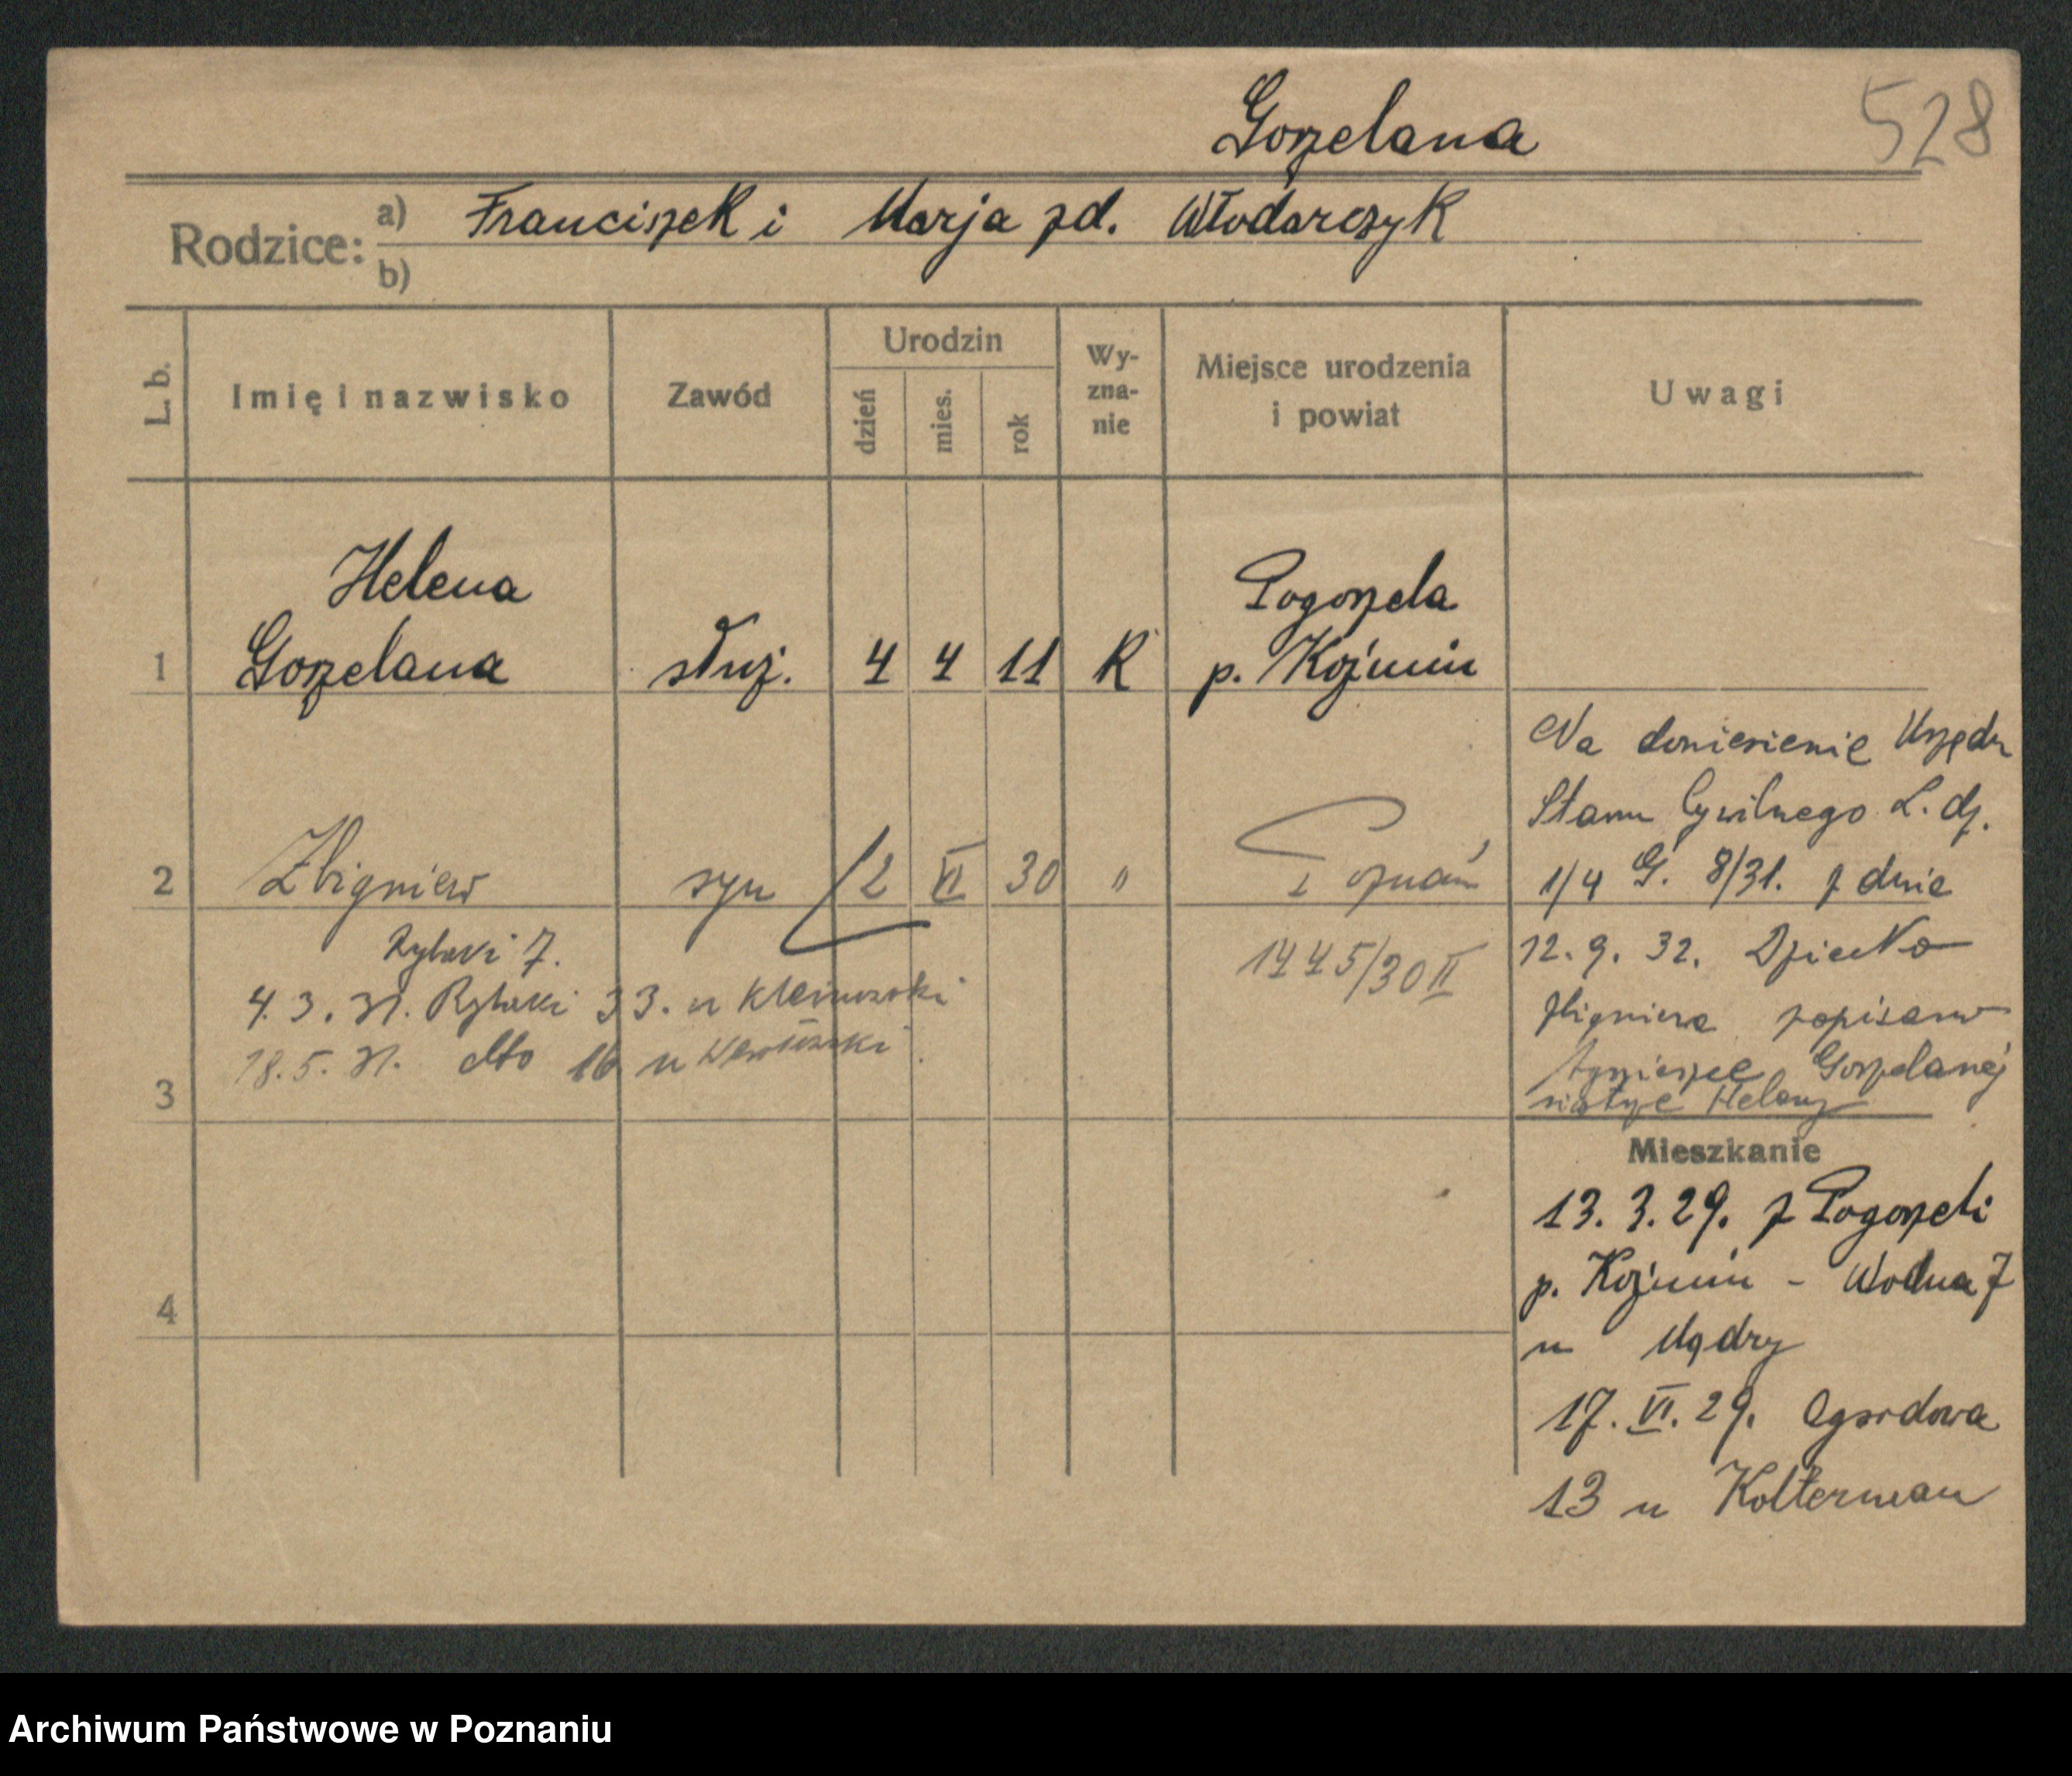 Gorzelana
528
Rodzice: a) Franciszek i Marja zd. Włodarczyk
b)
L. b.
Imię i nazwisko
Zawód
Urodzin
dzień
mies.
rok
Wy-
zna-
nie
Miejsce urodzenia
i powiat
Uwagi
Helena
Gorzelana
1
służ.
4 4 11 K
Pogorzela
p. Koźmin
2 Zbigniew syn 2 VI 30 " Poznań
1445/30 II
Rybaki 7.
4. 3. 31. Rybaki 33. u
18. 5. 31. dto 16 u
3
4
Na doniesienie Urzędu
Stanu Cywilnego L. dz.
1/4 G. 8/31. z dnia
12. 9. 32. Dziecko
Zbigniewa zapisano
Agnieszce Gorzelanej
siostrze Heleny
Mieszkanie
13. 3. 29. z Pogorzeli
p. Koźmin - Wodna 7
u Mądry
17. VI. 29. Ogrodowa
13 u Kolterman
Archiwum Państwowe w Poznaniu